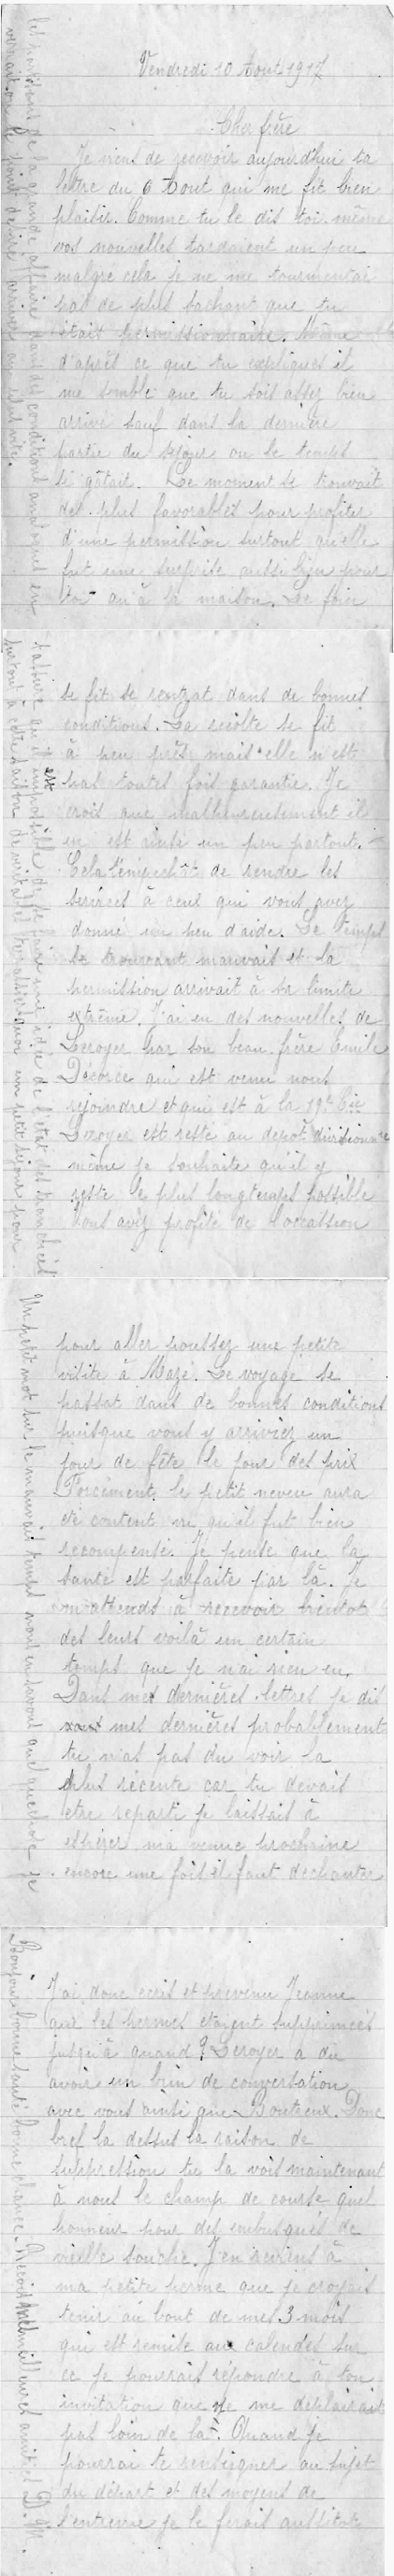 Vendredi 10 Aout 1917
Cher frère
Je viens de recevoir aujourd'hui ta
lettre du 6 Aout qui me fit bien
plaisir. Comme tu le dis toi-même
vos nouvelles tardaient un peu
malgre cela je ne me tourmentai
pas de plus sachant que tu
était permissionnaire. Même
d'après ce que tu expliques il
me semble que tu sois assez bien
arrivé sauf dans la dernière
partie du séjour ou le temps
se gâtait. Le moment se trouvait
des plus favorables pour profiter
d'une permission surtout qu'elle
fut une surprise aussi bien pour
toi qu'à la maison. Le foin
les partisans de la grande affaire dans des conditions analogues en
verrait on le point désiré arriver au plus vite.
se fit se rentrat dans de bonnes
conditions. La récolte se fit
à peu près mais elle n'est
pas toutes fois garantie. Je
crois que malheureusement il
en est ainsi un peu partout.
Cela t'empechât de rendre les
services à ceux qui vous avez
donné un peu d'aide. Le temps
se trouvant mauvais et la
permission arrivait à sa limite
extrême. J'ai eu des nouvelles de
Leroyer par son beau-frère Emile
Decorce qui est venu nous
rejoindre et qui est à la 19e Cie
Leroyer est resté au depot divisionnre
même je souhaite qu'il y
reste le plus longtemps possible
Vous avez profité de l'occassion
car il est impossible de se faire une idée de l'état des tranchées
surtout à cette saison de véritables un petit séjour pour
pour aller pousser une petite
visite à Mazé. Le voyage se
passat dans de bonnes conditions
puisque vous y arriviez un
jour de fête le jour des prix
Forcément le petit neveu aura
été content vu qu'il fut bien
recompensé. Je pense que la
santé est parfaite par là. Je
m'attends à recevoir bientot
des leurs voilà un certain
temps que je n'ai rien eu.
Dans mes dernières lettres je dis
mes dernières probablement
tu n'as pas du voir la
plus récente car tu devais
etre reparti je laissais à
espérer ma venue prochaine
encore une fois il faut dechanter
Un petit mot sur le mauvais temps nous en savons quelque chose je
J'ai donc ecris et prevenu Jeanne
que les permes etaient supprimées
jusqu'à quand ? Leroyer a du
avoir un brin de conversation
avec vous ainsi que Boutreux. Donc
bref la dessus la raison de
suppression tu la vois maintenant
à nous le champ de course quel
honneur pour des embusqués de
vieille souche. J'en reviens à
ma petite perme que je croyais
tenir au bout de mes 3 mois
qui est remise aux calendes sur
ce je pourrais répondre à ton
invitation que ne me deplairait
pas loin de là. Quand je
pourrai te renseigner au sujet
du départ et des moyens de
l'entrevue je le ferais aussitot
Bonjour bonne santé bonne chance. Recois mes meilleures amitiés D.M.